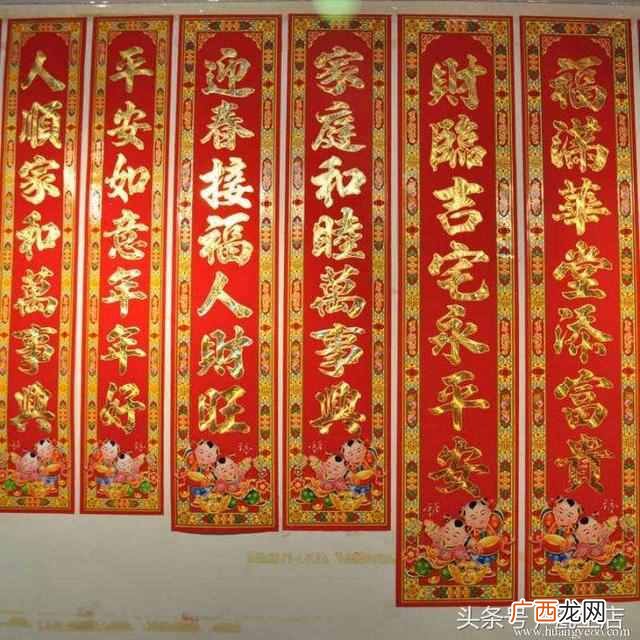 福滿華堂添富貴
財臨吉宅永平安
家庭和睦萬事興
迎春接福人財旺
平安如意年年好
人順家和萬事興
头条号
广西龙网